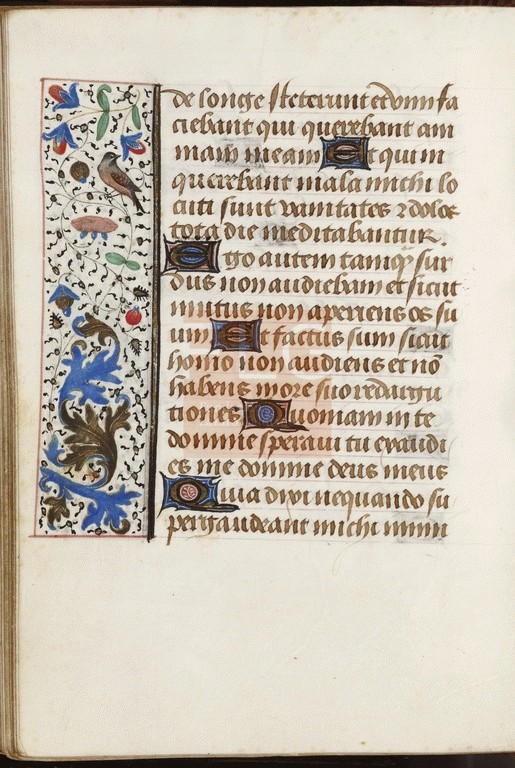 de longe steterunt et vim fa
ciebant qui querebant ani
mam meam Et qui in
querebant mala michi lo
cuti sunt vanitates ⁊ dolos
tota die meditabantur.
Ego autem tamqͣ sur
dus non audiebam et sicut
mutus non aperiens os su
um Et factus sum sicut
homo non audiens et nō
habens in ore suo redargu
tiones Quoniam in te
domine speraui tu exaudi
es me domine deus meus
Quia dixi nequando su
pergaudeant michi inimi